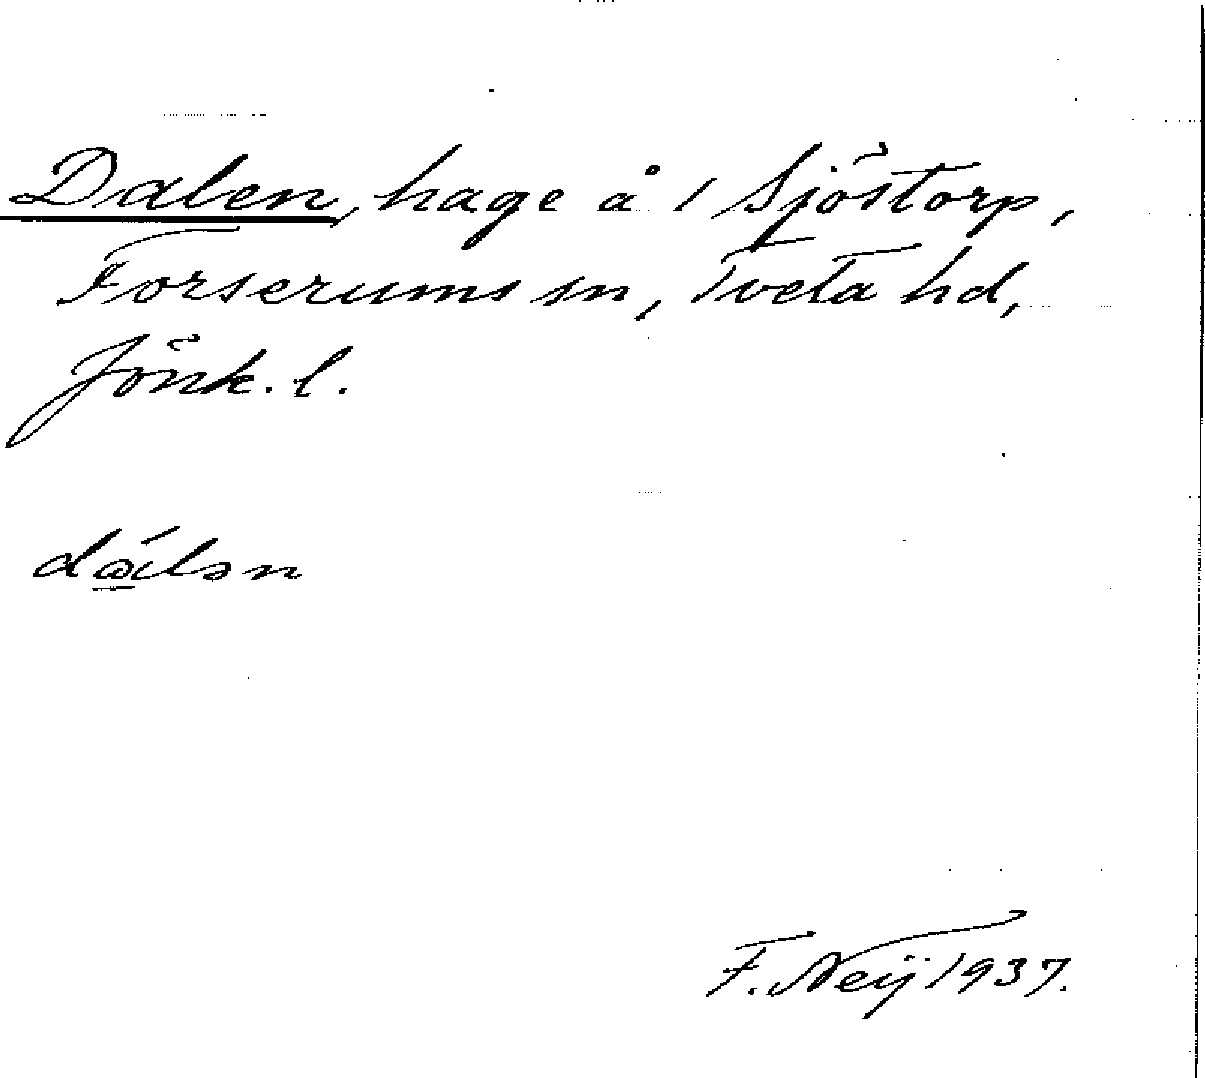 Dalen, hage å 1 Sjöstorp,
Forserums sn, Tveta hd,
Jönk. l.
F. Neij 1937.